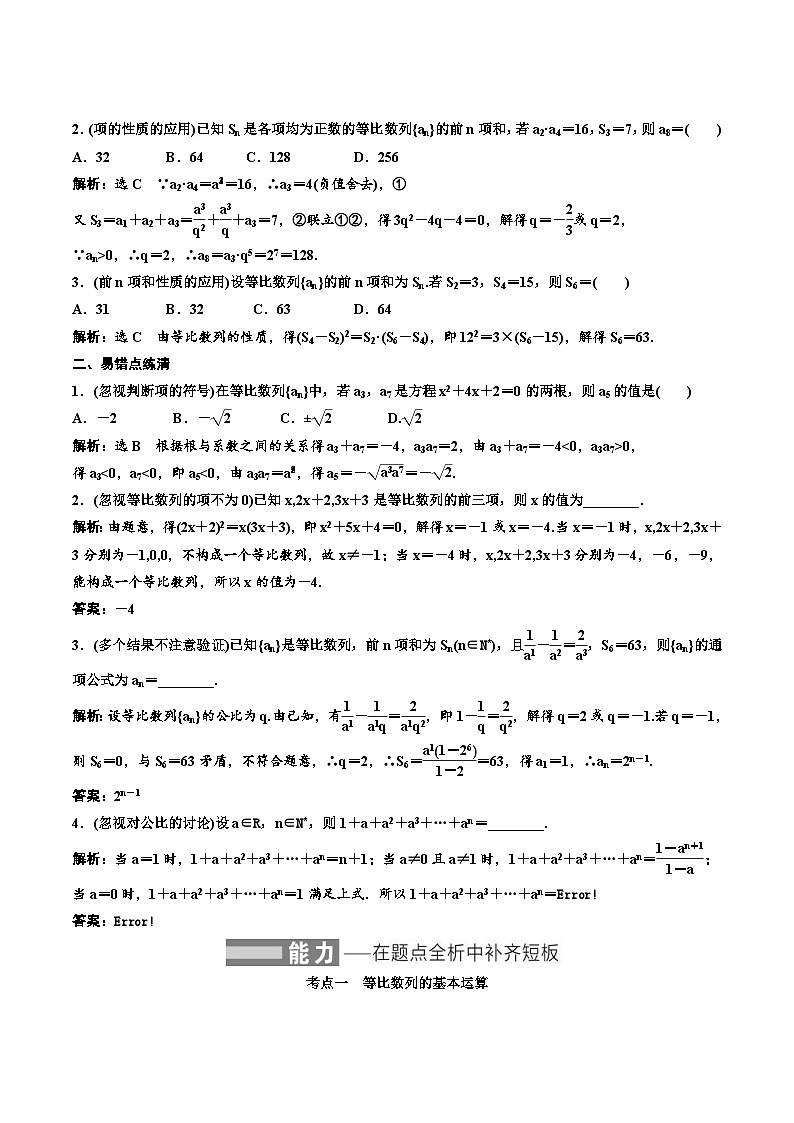 2．(项的性质的应用)已知 Sₙ是各项均为正数的等比数列{aₙ}的前 n 项和，若 a₂·a₄＝16，S₃＝7，则 a₈＝(　　)
A．32　　B．64　　C．128　　D．256
解析：选 C　∵a₂·a₄＝a²₃＝16，∴a₃＝4(负值舍去)，①
又 S₃＝a₁＋a₂＋a₃＝a3/q²＋a3/q＋a₃＝7，②联立①②，得 3q²－4q－4＝0，解得 q＝－2/3或 q＝2，
∵aₙ>0，∴q＝2，∴a₈＝a₃·q⁵＝2⁷＝128.
3．(前 n 项和性质的应用)设等比数列{aₙ}的前 n 项和为 Sₙ.若 S₂＝3，S₄＝15，则 S₆＝(　　)
A．31　　B．32　　C．63　　D．64
解析：选 C　由等比数列的性质，得(S₄－S₂)²＝S₂·(S₆－S₄)，即 12²＝3×(S₆－15)，解得 S₆＝63.
二、易错点练清
1．(忽视判断项的符号)在等比数列{aₙ}中，若 a₃，a₇是方程 x²＋4x＋2＝0 的两根，则 a₅的值是(　　)
A．－2　　B．－√2　　C．±√2　　D.√2
解析：选 B　根据根与系数之间的关系得 a₃＋a₇＝－4，a₃a₇＝2，由 a₃＋a₇＝－4<0，a₃a₇>0，
得 a₃<0，a₇<0，即 a₅<0，由 a₃a₇＝a²₅，得 a₅＝－√(a3a7)＝－√2.
2．(忽视等比数列的项不为 0)已知 x,2x＋2,3x＋3 是等比数列的前三项，则 x 的值为________.
解析：由题意，得(2x＋2)²＝x(3x＋3)，即 x²＋5x＋4＝0，解得 x＝－1 或 x＝－4.当 x＝－1 时，x,2x＋2,3x＋
3 分别为－1,0,0，不构成一个等比数列，故 x≠－1；当 x＝－4 时，x,2x＋2,3x＋3 分别为－4，－6，－9，
能构成一个等比数列，所以 x 的值为－4.
答案：－4
3．(多个结果不注意验证)已知{aₙ}是等比数列，前 n 项和为 Sₙ(n∈N*)，且1/a1－1/a2＝2/a3，S₆＝63，则{aₙ}的通
项公式为 aₙ＝________.
解析：设等比数列{aₙ}的公比为 q.由已知，有1/a1－1/a1q＝2/a1q²，即 1－1/q＝2/q²，解得 q＝2 或 q＝－1.若 q＝－1，
则 S₆＝0，与 S₆＝63 矛盾，不符合题意，∴q＝2，∴S₆＝a1(1－2⁶)/1－2＝63，得 a₁＝1，∴aₙ＝2ⁿ⁻¹.
答案：2ⁿ⁻¹
4．(忽视对公比的讨论)设 a∈R，n∈N*，则 1＋a＋a²＋a³＋…＋aⁿ＝________.
解析：当 a＝1 时，1＋a＋a²＋a³＋…＋aⁿ＝n＋1；当 a≠0 且 a≠1 时，1＋a＋a²＋a³＋…＋aⁿ＝1－aⁿ⁺¹/1－a；
当 a＝0 时，1＋a＋a²＋a³＋…＋aⁿ＝1 满足上式．所以 1＋a＋a²＋a³＋…＋aⁿ＝Error!
答案：Error!
能力——在题点全析中补齐短板
考点一　等比数列的基本运算